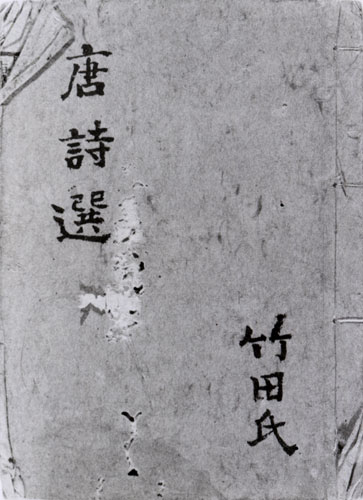 唐詩選
竹田氏